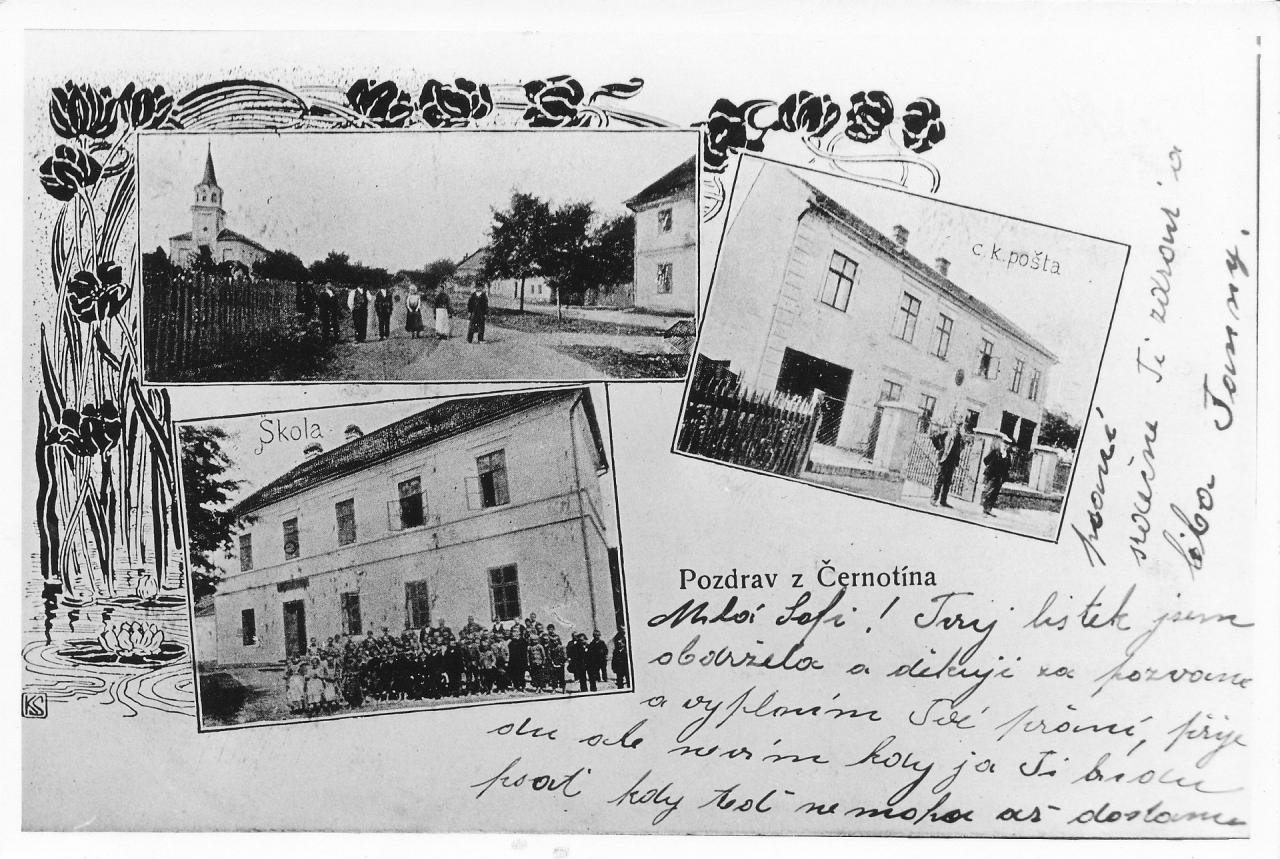 c. k. pošta
Škola
Pozdrav z Černotína
Milá Sofi! Tvůj lístek jsem
obdržela a děkuji za pozvání
a vyplním Tvé přání, přije
du ale nevím kdy ja Ti budu
psat kdy teď nemoha až dostanu
psaní
srdečně Ti zdraví a
líbá
KS